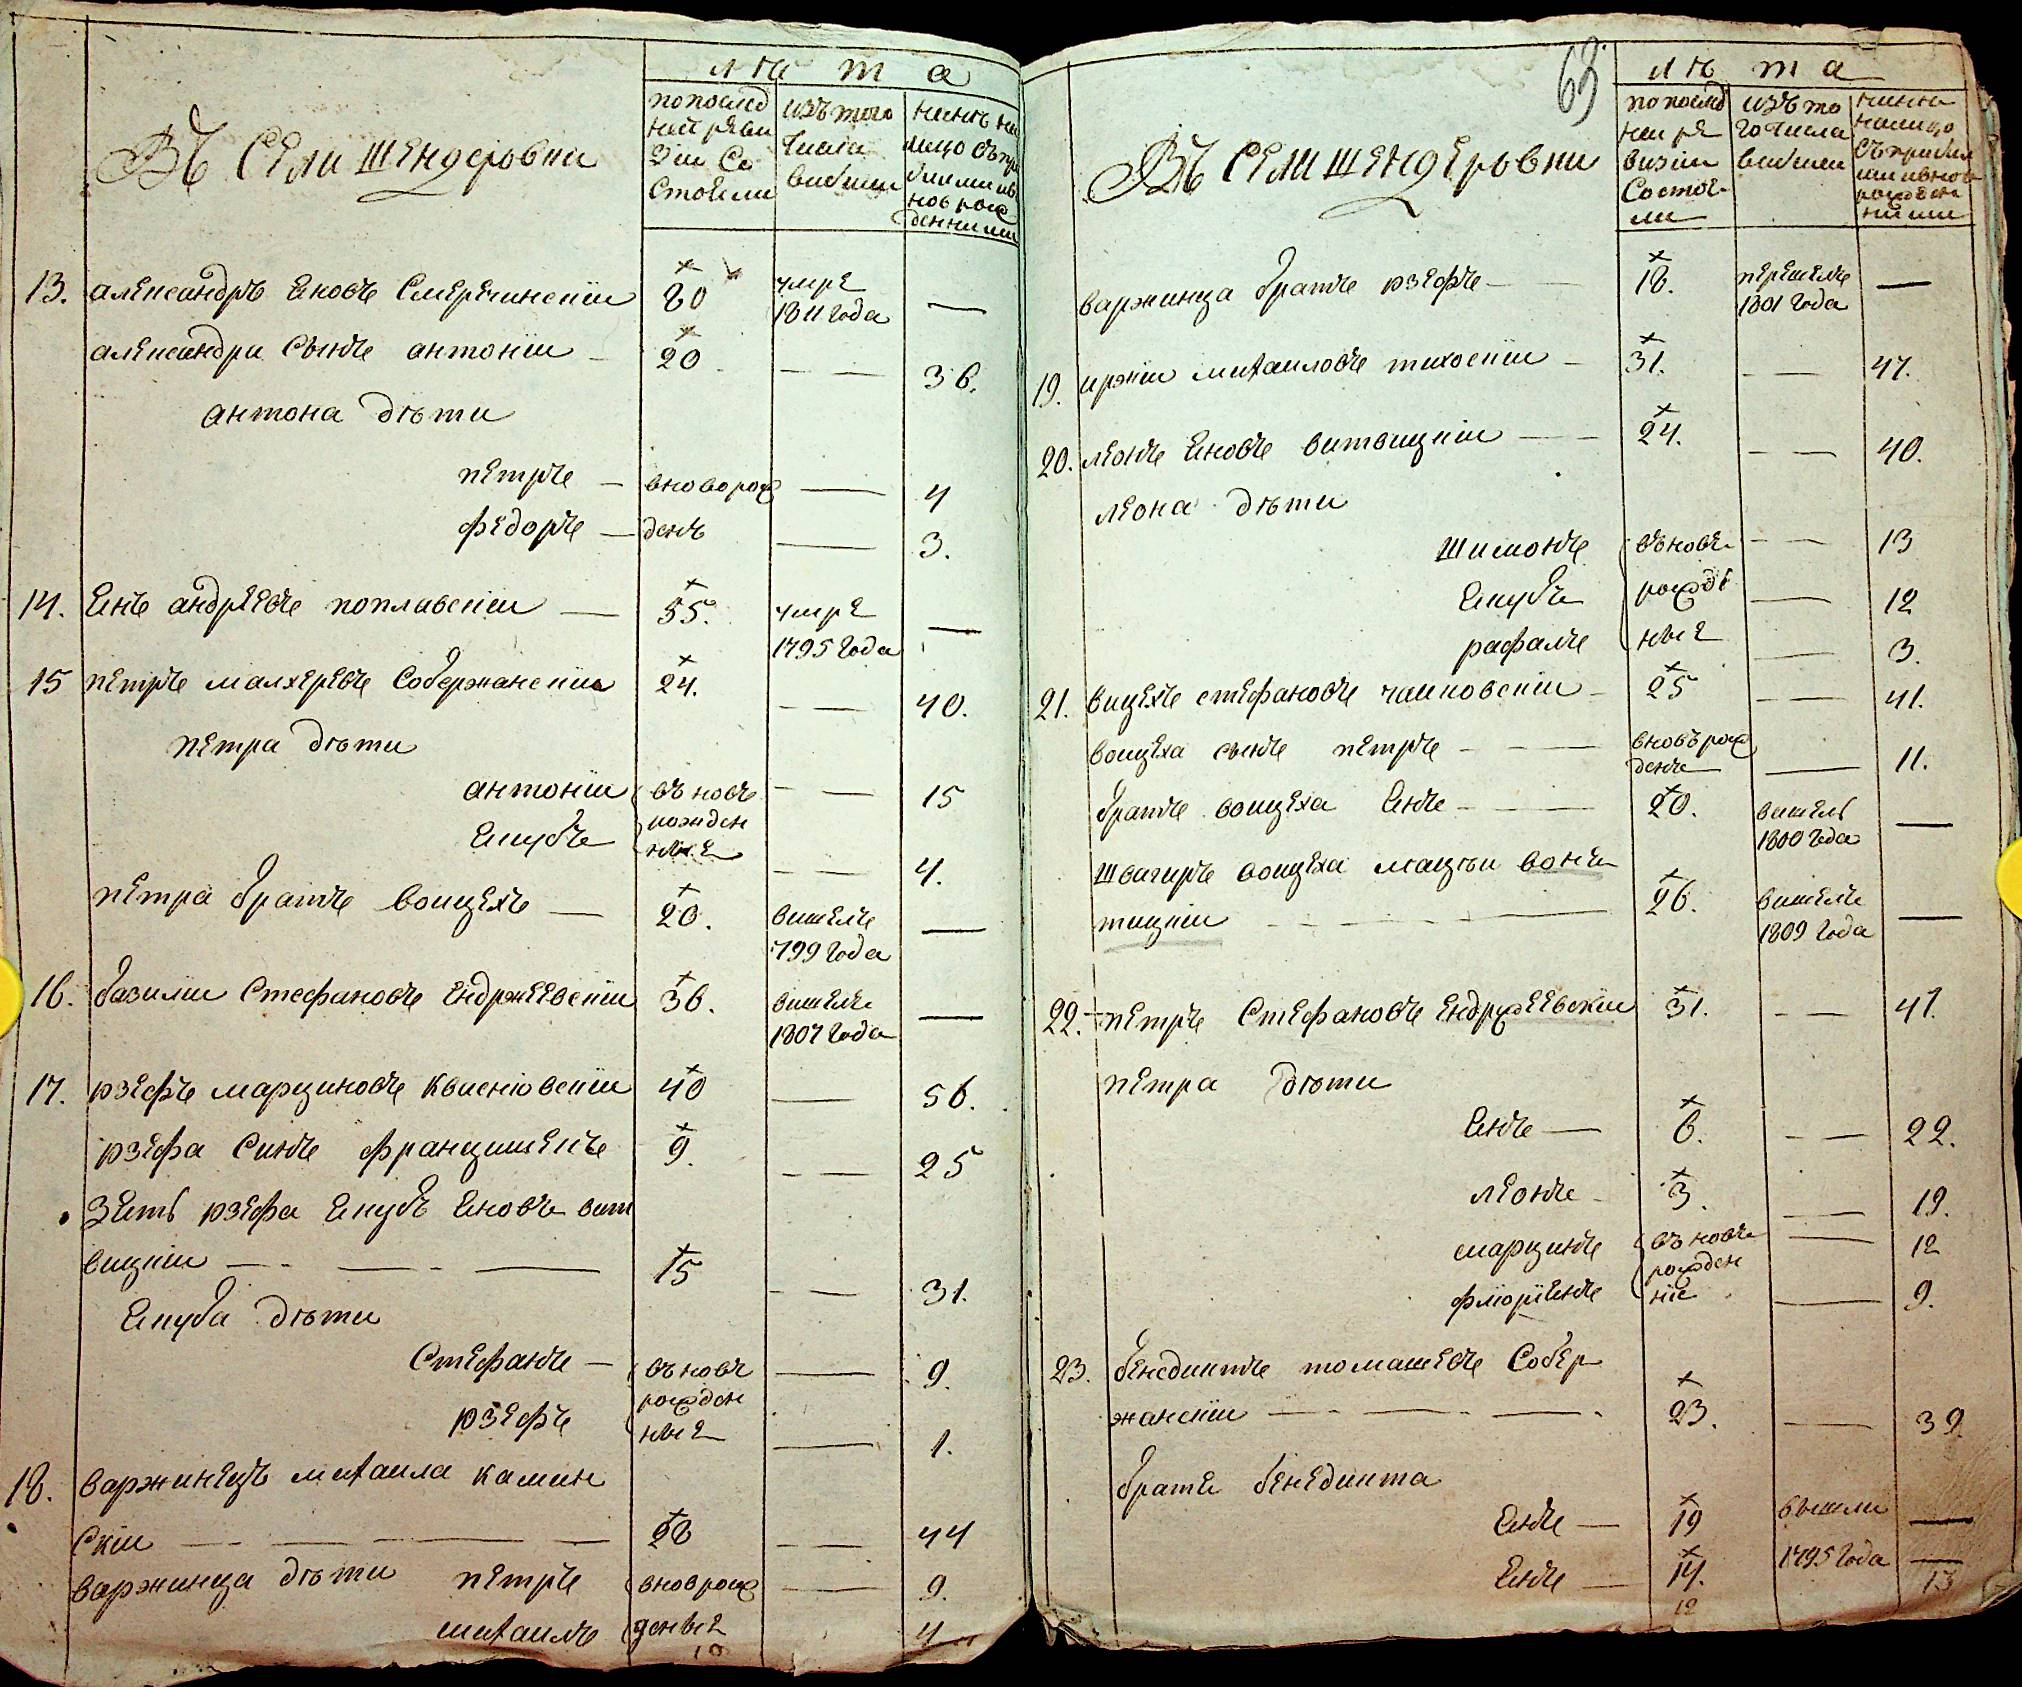 лѣта
Въ Сели Шендеровки
по послед
ней реви
зіи Со
стояли
изъ того
числа
выбыли
нинѣ на
лицо съ при
новорож
денними
13. Александръ Яновъ Смеречинскіи 20 умре —
1811 года
Александра Сынъ антоніи 20 — — 36.
антона дѣти
петръ — вноворож — 4
федоръ — денъ — 3.
14. Янъ андреевъ поплавскіи — 55. умре —
1795 года
15 петръ малхеревъ Собержанскіи 24. — — 40.
петра дѣти
антоніи въновъ — — 15
Якубъ рожден
ные — — 4.
петра братъ воицехъ — 20. вишелъ —
799 года
16. базили Стефановъ Ендржеевскіи 36. вишелъ —
1807 года
17. юзефъ марциновъ квисніовскіи 40 — 56.
юзефа Синъ францишекъ 9. — — 25
Зять юзефа Якубъ Яновъ вит
вицкіи — — — 15 — — 31.
Якуба дѣти
Стефанъ — въновъ — 9.
рожден
юзефъ ные — 1.
18. варжинецъ михаила камин
скіи — — — — 28 — — 44
варжинца дѣти петръ вноврож — 9.
михаилъ деные 4
10
63.
лѣта
Въ Сели Шендеровки
по послед
ней ре
визіи
Состоя-
ли
изъ то
го числа
выбыли
нинѣ
налицо
съ прибил
рожден
ними
варжинца братъ юзефъ — — 18. перешелъ —
1801 года
19. иржіи михаиловъ тихоскіи — 31. — — 47.
20. леонъ Яновъ витвицкіи — — 24. — — 40.
леона дѣти
шимонъ въновъ — — 13
Якубъ рожде — 12
рафалъ ные — 3.
21. вицехъ стефановъ чаиковскіи — 25 — — 41.
воицеха сынъ петръ — — — вновърож
денъ — 11.
братъ воицеха Янъ — — 20. вишелъ —
1800 года
швагиръ воицеха мацѣи вонъ
тицкіи — — — — 26. вишелъ —
1809 года
22. петръ Стефановъ Ендржеевскіи 31. — — 47.
петра дѣти
Янъ — 6. — — 22.
леонъ — 3. — 19.
марцинъ въновъ — 12
рожден
флюріянъ ніе — 9.
23. бенедиктъ томашевъ Собер
жанскіи — — — — 23. — 39.
братя бенедикта
Янъ — 19 вышли —
Янъ — 14. 1795 года —
12 13